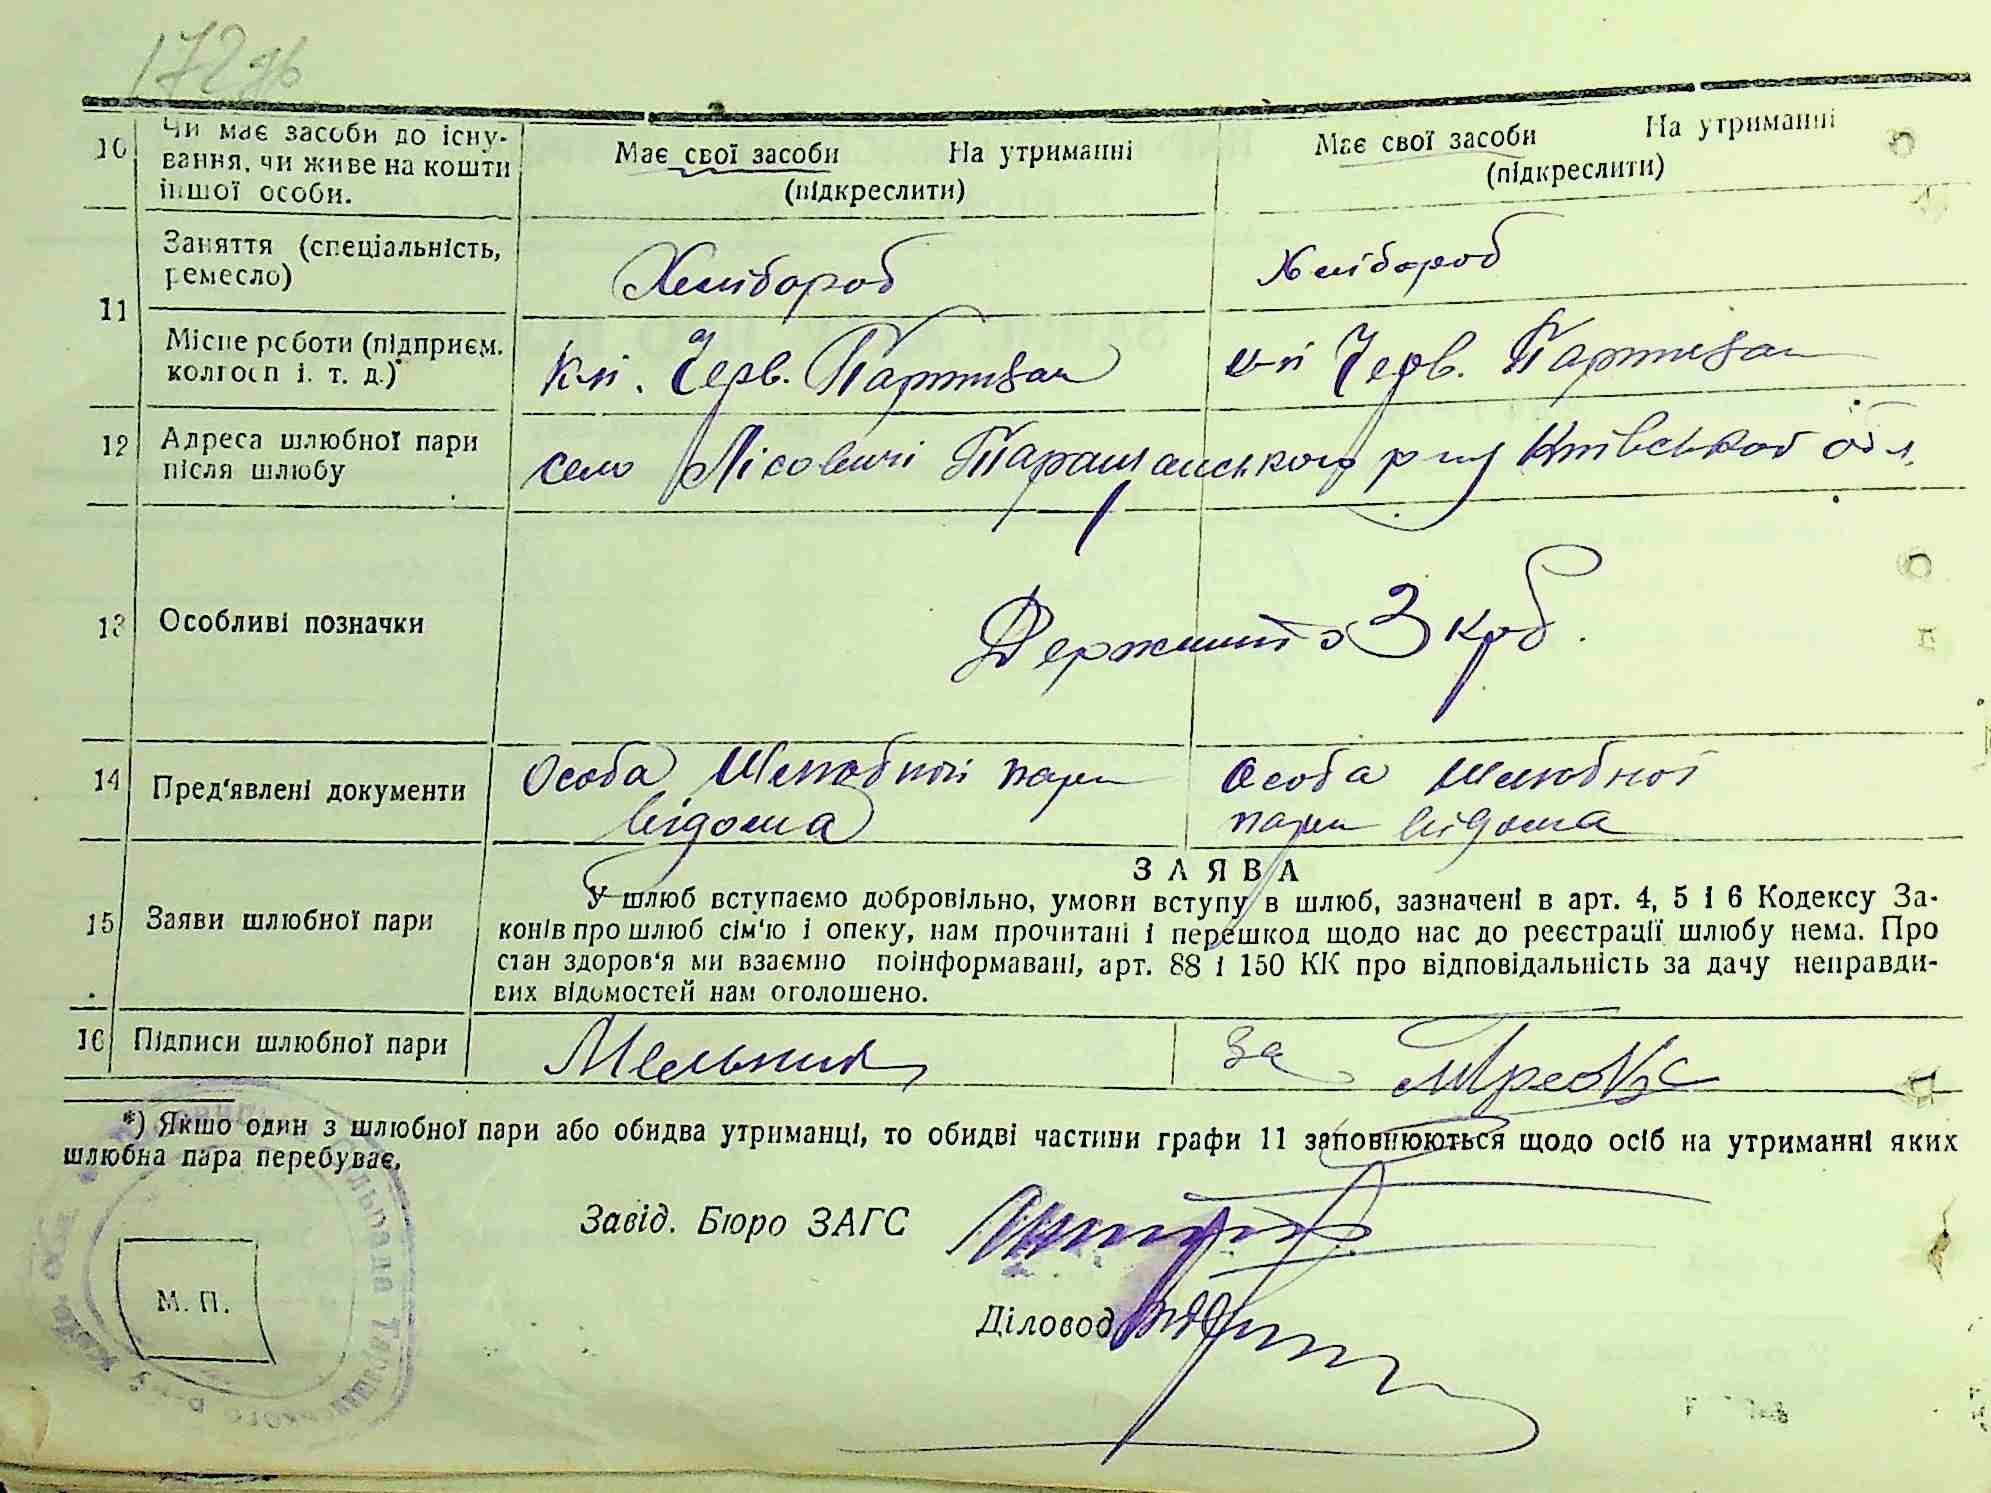 172
10 Чи має засоби до існу-
вання, чи живе на кошти
іншої особи.
Має свої засоби На утриманні
(підкреслити)
Має свої засоби На утриманні
(підкреслити)
11 Заняття (спеціальність,
ремесло)
Хлібороб
Хлібороб
Місце роботи (підприєм.
колгосп і. т. д.)
Черв. Партизан
Черв. Партизан
12 Адреса шлюбної пари
після шлюбу
село Лісовичі Таращанського р-ну Київської обл.
13 Особливі позначки
Держмито 3 крб.
14 Пред'явлені документи
Особа Шлюбної пари
відома
Особа шлюбної
пари відома
15 Заяви шлюбної пари
ЗАЯВА
У шлюб вступаємо добровільно, умови вступу в шлюб, зазначені в арт. 4, 5 і 6 Кодексу За-
конів про шлюб сім'ю і опеку, нам прочитані і перешкод щодо нас до реєстрації шлюбу нема. Про
стан здоров'я ми взаємно поінформавані, арт. 88 і 150 КК про відповідальність за дачу неправди-
вих відомостей нам оголошено.
16 Підписи шлюбної пари
Мельник
За
*) Якшо один з шлюбної пари або обидва утриманці, то обидві частини графи 11 заповнюються щодо осіб на утриманні яких
шлюбна пара перебуває.
Завід. Бюро ЗАГС
Діловод
М. П.
сільрада Таращанського р-ну